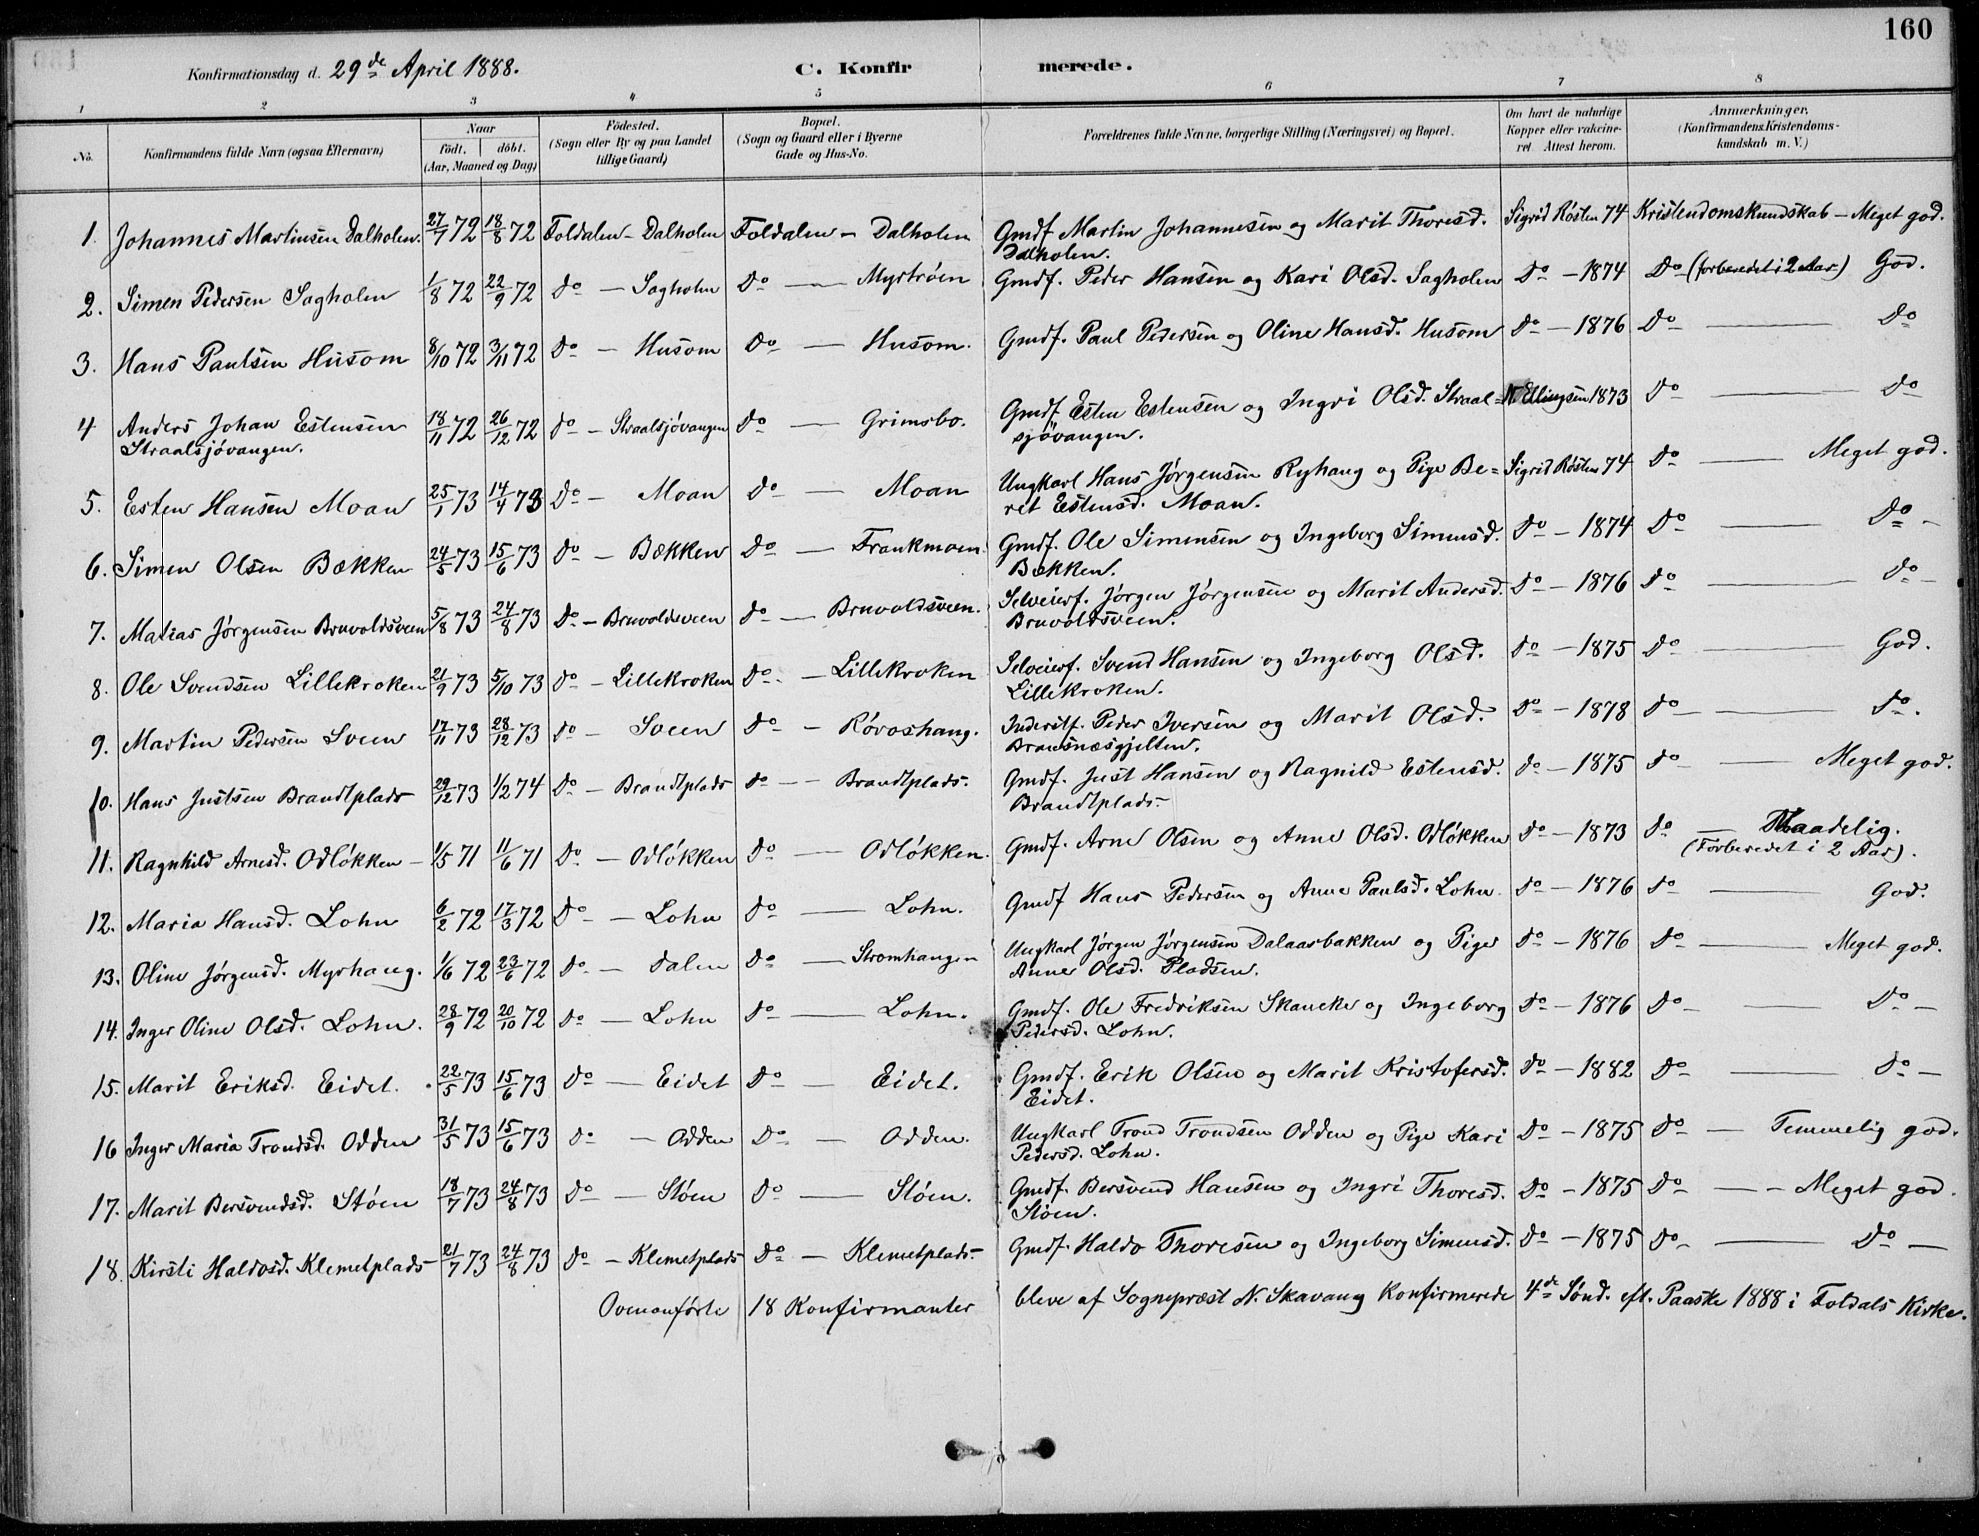 160
Konfirmationsdag d. 29de April 1888. C. Konfirmerede.
1 2 3 4 5 6 7 8
No. Konfirmandens fulde Navn (ogsaa Efternavn) Naar født. døbt. (Aar, Maaned og Dag) Födested. (Sogn eller By og paa Landet tillige Gaard) Bopæl. (Sogn og Gaard eller i Byerne Gade og Hus-No. Forældrenes fulde Navne, borgerlige Stilling (Næringsvei) og Bopæl. Om havt de naturlige Kopper eller vakcineret Attest herom. Anmærkninger. (Konfirmandens Kristendomskundskab m. V.)
1. Johannes Martinsen Dalholen. 27/7 72 18/8 72 Foldalen - Dalholen Foldalen - Dalholen Gmdf Martin Johannesen og Marit Thoresd. Sigrid Røsten 74 Kristendomskundskab - Meget god.
Dalholen.
2. Simen Pedersen Sagholen 1/8 72 22/9 72 Do - Sagholen Do - Myrtrøen Gmdf. Peder Hansen og Kari Olsd. Sagholen Do - 1874 Do (forberedet i 2 Aar) God.
3. Hans Paulsen Husom 8/10 72 3/11 72 Do - Husom Do - Husom. Gmdf. Paul Pedersen og Oline Hansd. Husom Do - 1876 Do - Do
4 Anders Johan Estensen 18/11 72 26/12 72 Do - Straalsjøvangen Do - Grimsbo. Gmdf Esten Estensen og Ingri Olsd. Straal= Ellingsen 1873 Do - Do
Straalsjøvangen. sjøvangen.
5. Esten Hansen Moan 25/1 73 14/4 73 Do - Moan Do - Moan Ungkarl Hans Jørgensen Ryhaug og Pige Be= Sigrid Røsten 74 Do - Meget god.
ret Estensd. Moan.
6. Simen Olsen Bækken 24/5 73 15/6 73 Do - Bækken Do - Frankmoen. Gmdf. Ole Simensen og Ingeborg Simensd. Do - 1874 Do - Do -
Bækken.
7. Matias Jørgensen Bruvoldsveen 5/8 73 24/8 73 Do - Bruvoldsveen Do - Bruvoldsveen. Selveierf. Jørgen Jørgensen og Marit Andersd. Do - 1876 Do - Do -
Bruvoldsveen.
8. Ole Svendsen Lillekroken 21/9 73 5/10 73 Do - Lillekroken Do - Lillekroken Selveierf. Svend Hansen og Ingeborg Olsd. Do - 1875 Do - God.
Lillekroken.
9. Martin Pedersen Sveen 17/11 73 28/12 73 Do - Sveen Do - Røroshaug. Inderstf. Peder Iversen og Marit Olsd. Do - 1878 Do - Do.
10. Hans Justsen Brandtplads 29/12 73 1/2 74 Do - Brandtplads Do - Brandtplads. Gmdf. Just Hansen og Ragnild Estensd. Do - 1875 Do - Meget god.
Brandtplads.
11. Ragnhild Arnesd. Odløkken - 1/5 71 11/6 71 Do - Odløkken Do - Odløkken. Gmdf. Arne Olsen og Anne Olsd. Odløkken Do - 1873 Do - Maadelig.
(Forberedet i 2 Aar).
12. Maria Hansd. Lohn 6/2 72 17/3 72 Do - Lohn Do - Lohn. Gmdf Hans Pedersen og Anne Paulsd. Lohn Do - 1876 Do - God.
13. Oline Jørgensd. Myrhaug. 1/6 72 23/6 72 Do - Dalen Do - Stromhaugen Ungkarl Jørgen Jørgensen Dalaasbakken og Pige Do - 1876 Do - Meget god.
Anne Olsd. Pladsen.
14. Inger Oline Olsd. Lohn. 28/9 72 20/10 72 Do - Lohn Do - Lohn. Gmdf. Ole Fredriksen Skancke og Ingeborg Do - 1876 Do - Do -
Pedersd. Lohn.
15. Marit Eriksd. Eidet. 22/5 73 15/6 73 Do - Eidet Do - Eidet. Gmdf. Erik Olsen og Marit Kristofersd. Do - 1882 Do - Do -
Eidet.
16 Inger Maria Trondsd. Odden 31/5 73 15/6 73 Do - Odden Do - Odden. Ungkarl Trond Trondsen Odden og Pige Kari Do - 1875 Do - Temmelig god.
Pedersd. Lohn.
17. Marit Bersvendsd. Støen 18/7 73 24/8 73 Do - Støen Do - Støen. Gmdf. Bersvend Hansen og Ingri Thoresd. Do - 1875 Do - Meget god.
Støen.
18. Kirsti Haldosd. Klemetplads 21/7 73 24/8 73 Do - Klemetplads Do - Klemetplads. Gmdf. Haldo Thoresen og Ingeborg Simensd. Do - 1875 Do - Do -
Ovenanførte 18 Konfirmanter bleve af Sognepræst N. Skavang Konfirmerede 4de Sønd. eft. Paaske 1888 i Foldals Kirke.